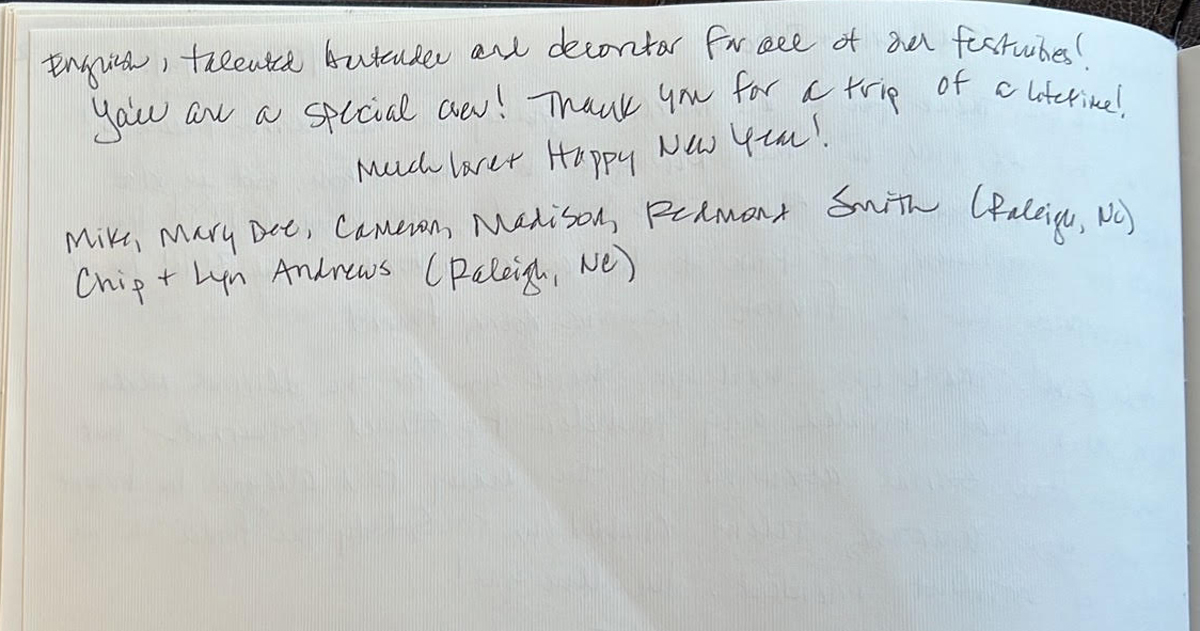 English, talented bartender and decorator for all of our festivities!
Ya'll are a special crew! Thank you for a trip of a lifetime!
Much love + Happy New Year!
Mike, Mary Dee, Cameron, Madison, Redmond Smith (Raleigh, NC)
Chip + Lyn Andrews (Raleigh, NC)